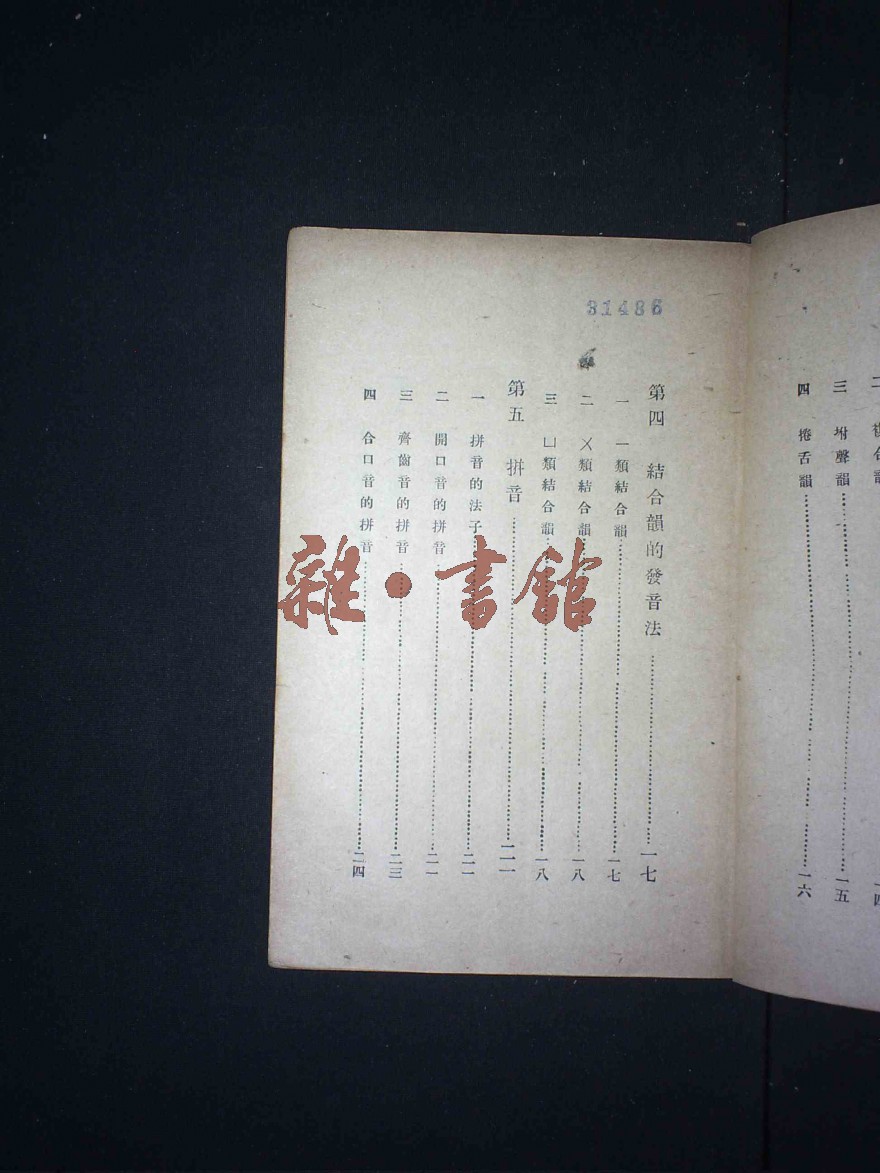 二 複合韻……一四
三 坿聲韻……一五
四 捲舌韻……一六
31486
第四 結合韻的發音法……一七
一 ㄧ類結合韻……一七
二 ㄨ類結合韻……一八
三 ㄩ類結合韻……一八
第五 拼音……二一
一 拼音的法子……二一
二 開口音的拼音……二一
三 齊齒音的拼音……二三
四 合口音的拼音……二四
雜·書館